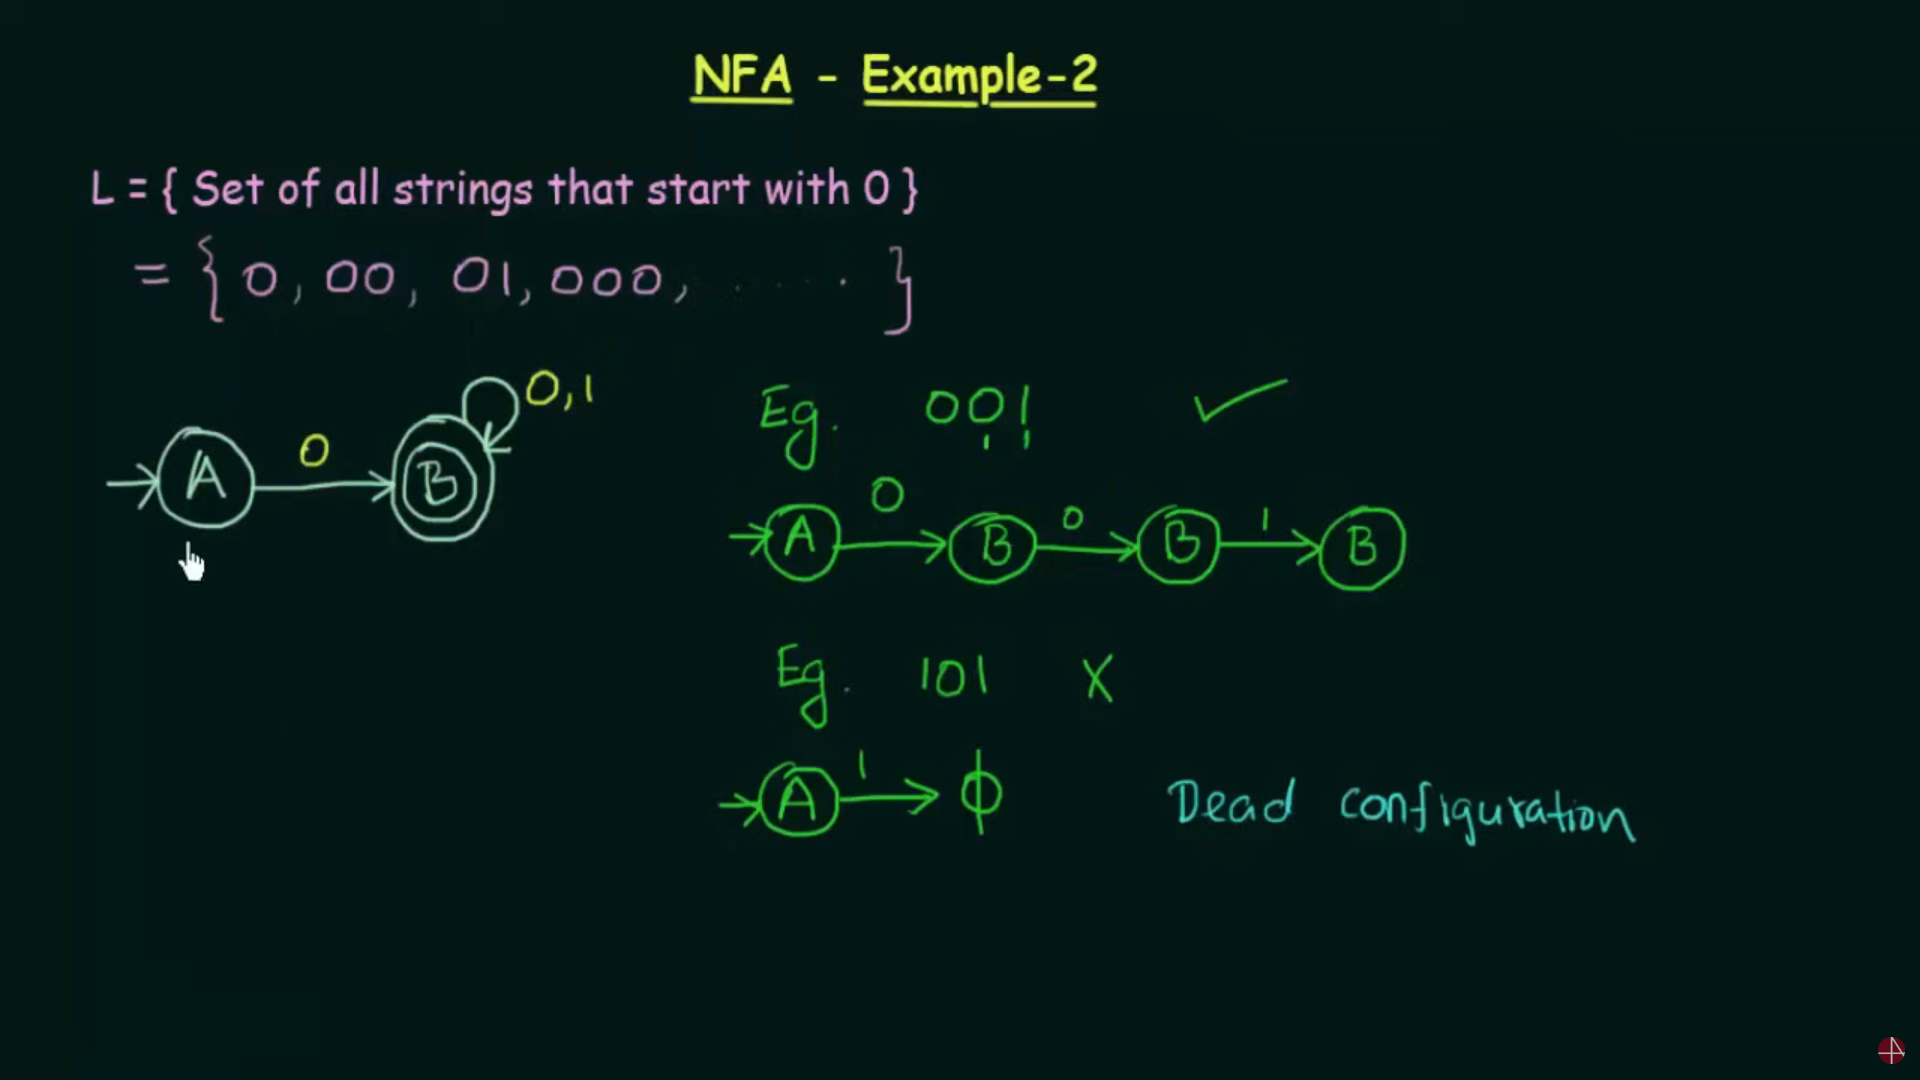 NFA - Example-2
L = { Set of all strings that start with 0 }
= { 0, 00, 01, 000, ..... }
0,1
A 0 B
Eg. 001 ✓
A 0 B 0 B 1 B
Eg. 101 X
A 1 ϕ
Dead configuration